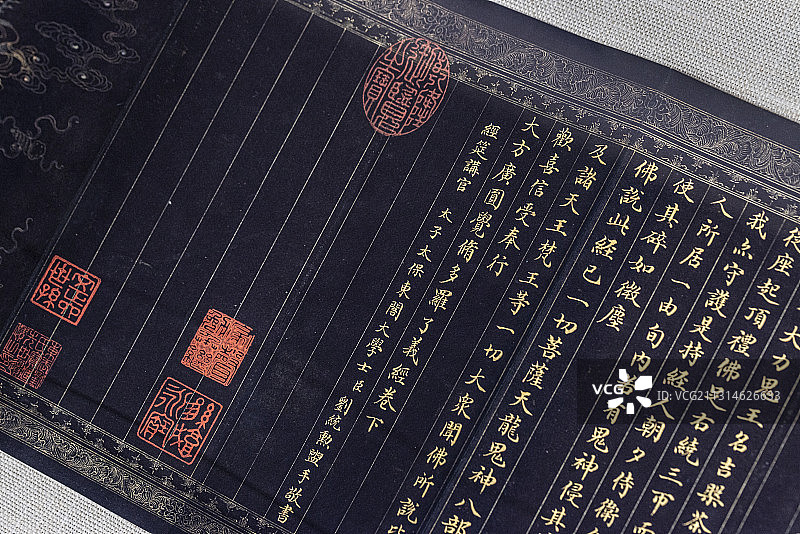 大力鬼王名吉槃茶
從座起頂禮佛足右繞三帀而
我亦守護是持經人朝夕侍衛
人所居一由旬內有鬼神侵其
使其碎如微塵
佛說此經已一切菩薩天龍鬼神八部
及諸天王梵王等一切大眾聞佛所說皆
歡喜信受奉行
大方廣圓覺脩多羅了義經卷下
經筵講官 太子太保東閣大學士臣劉統勳盥手敬書
VCG